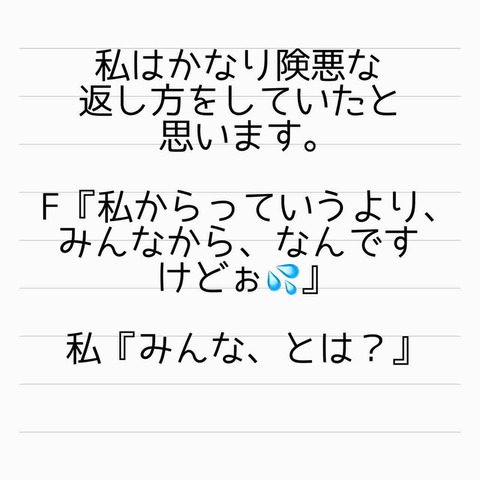 私はかなり険悪な
返し方をしていたと
思います。
F『私からっていうより、
みんなから、なんです
けどぉ💦』
私『みんな、とは？』